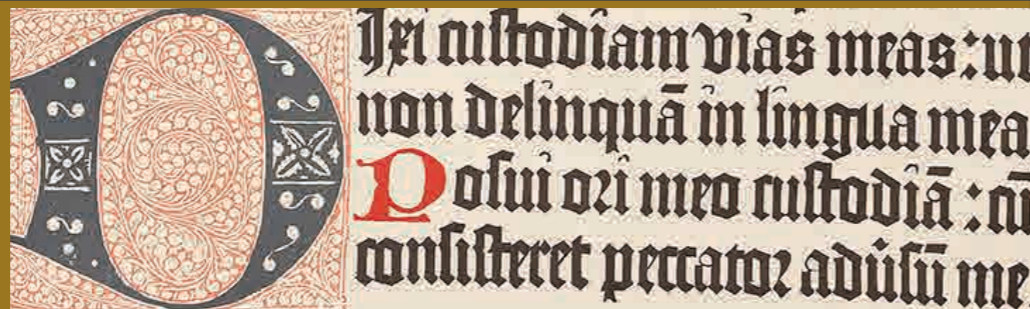 Dixi custodiam vias meas : ut
non delinquā in lingua mea
Posui ori meo custodiā : cū
consisteret peccator adūsū me